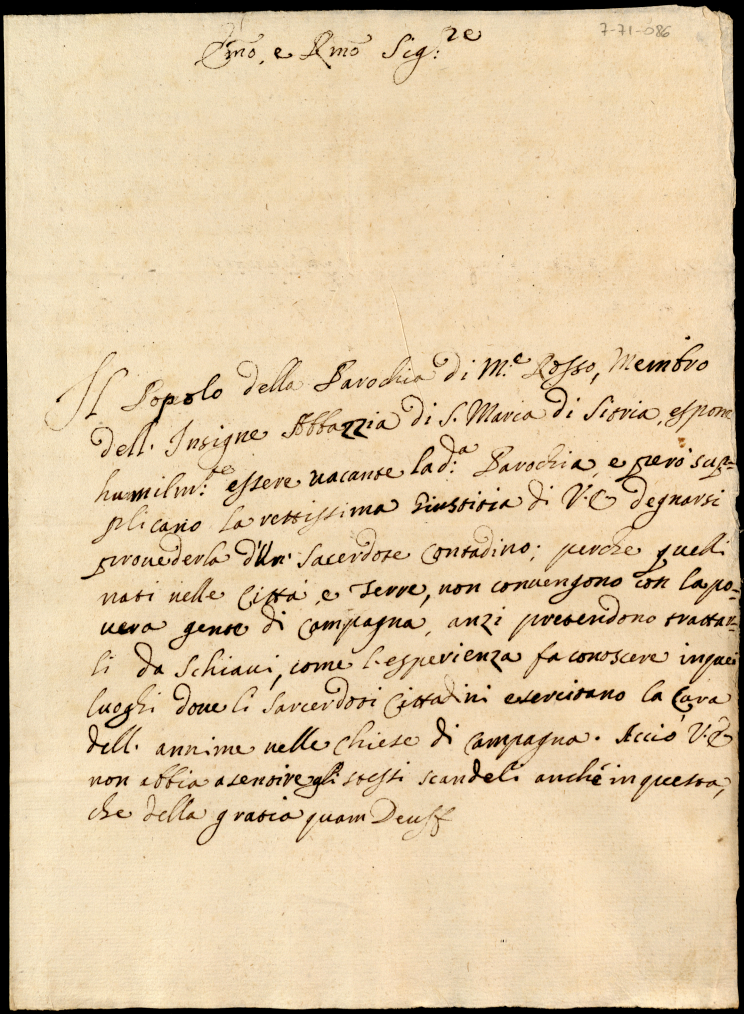 7-71-086
Emo, e Rmo Sig:re
Il Popolo della Parochia di M.e Rosso, Membro
dell. Insigne Abbazzia di S. Maria di Sitria, espone
humilm:te essere vacante la d:a Parochia, e però sup=
plicano la rettissima Giustitia di V.E degnarsi
provederla d'Un' Sacerdote Contadino; perche quelli
nati nelle Città, e Terre, non convengono con la po=
vera gente di Campagna, anzi pretendono trattar=
li da Schiavi, come l'esperienza fa conoscere in quei
luoghi dove li Sarcerdoti Cittadini esercitano la Cura
dell. annime nelle Chiese di Campagna. Acciò V.E
non abbia a sentire gli stessi scandeli anche in questa,
che della gratia quam Deus